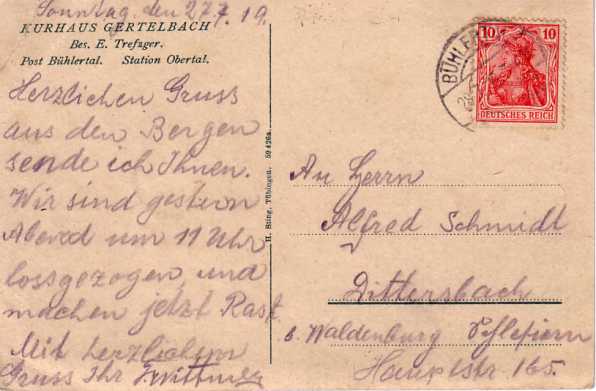 Sonntag den 27.7.19.
KURHAUS GERTELBACH
Bes. E. Trefzger.
Post Bühlertal. Station Obertal.
Herzlichen Gruss
aus den Bergen
sende ich Ihnen.
Wir sind gestern
Abend um 11 Uhr
lossgezogen, und
machen jetzt Rast
Mit herzlichem
Gruss Ihr
H. Sting, Tübingen. 59426a
BÜHLER
10 10
DEUTSCHES REICH
An Herrn
Alfred Schmidt
Dittersbach
b. Waldenburg Schlesien
Hauptstr. 165.